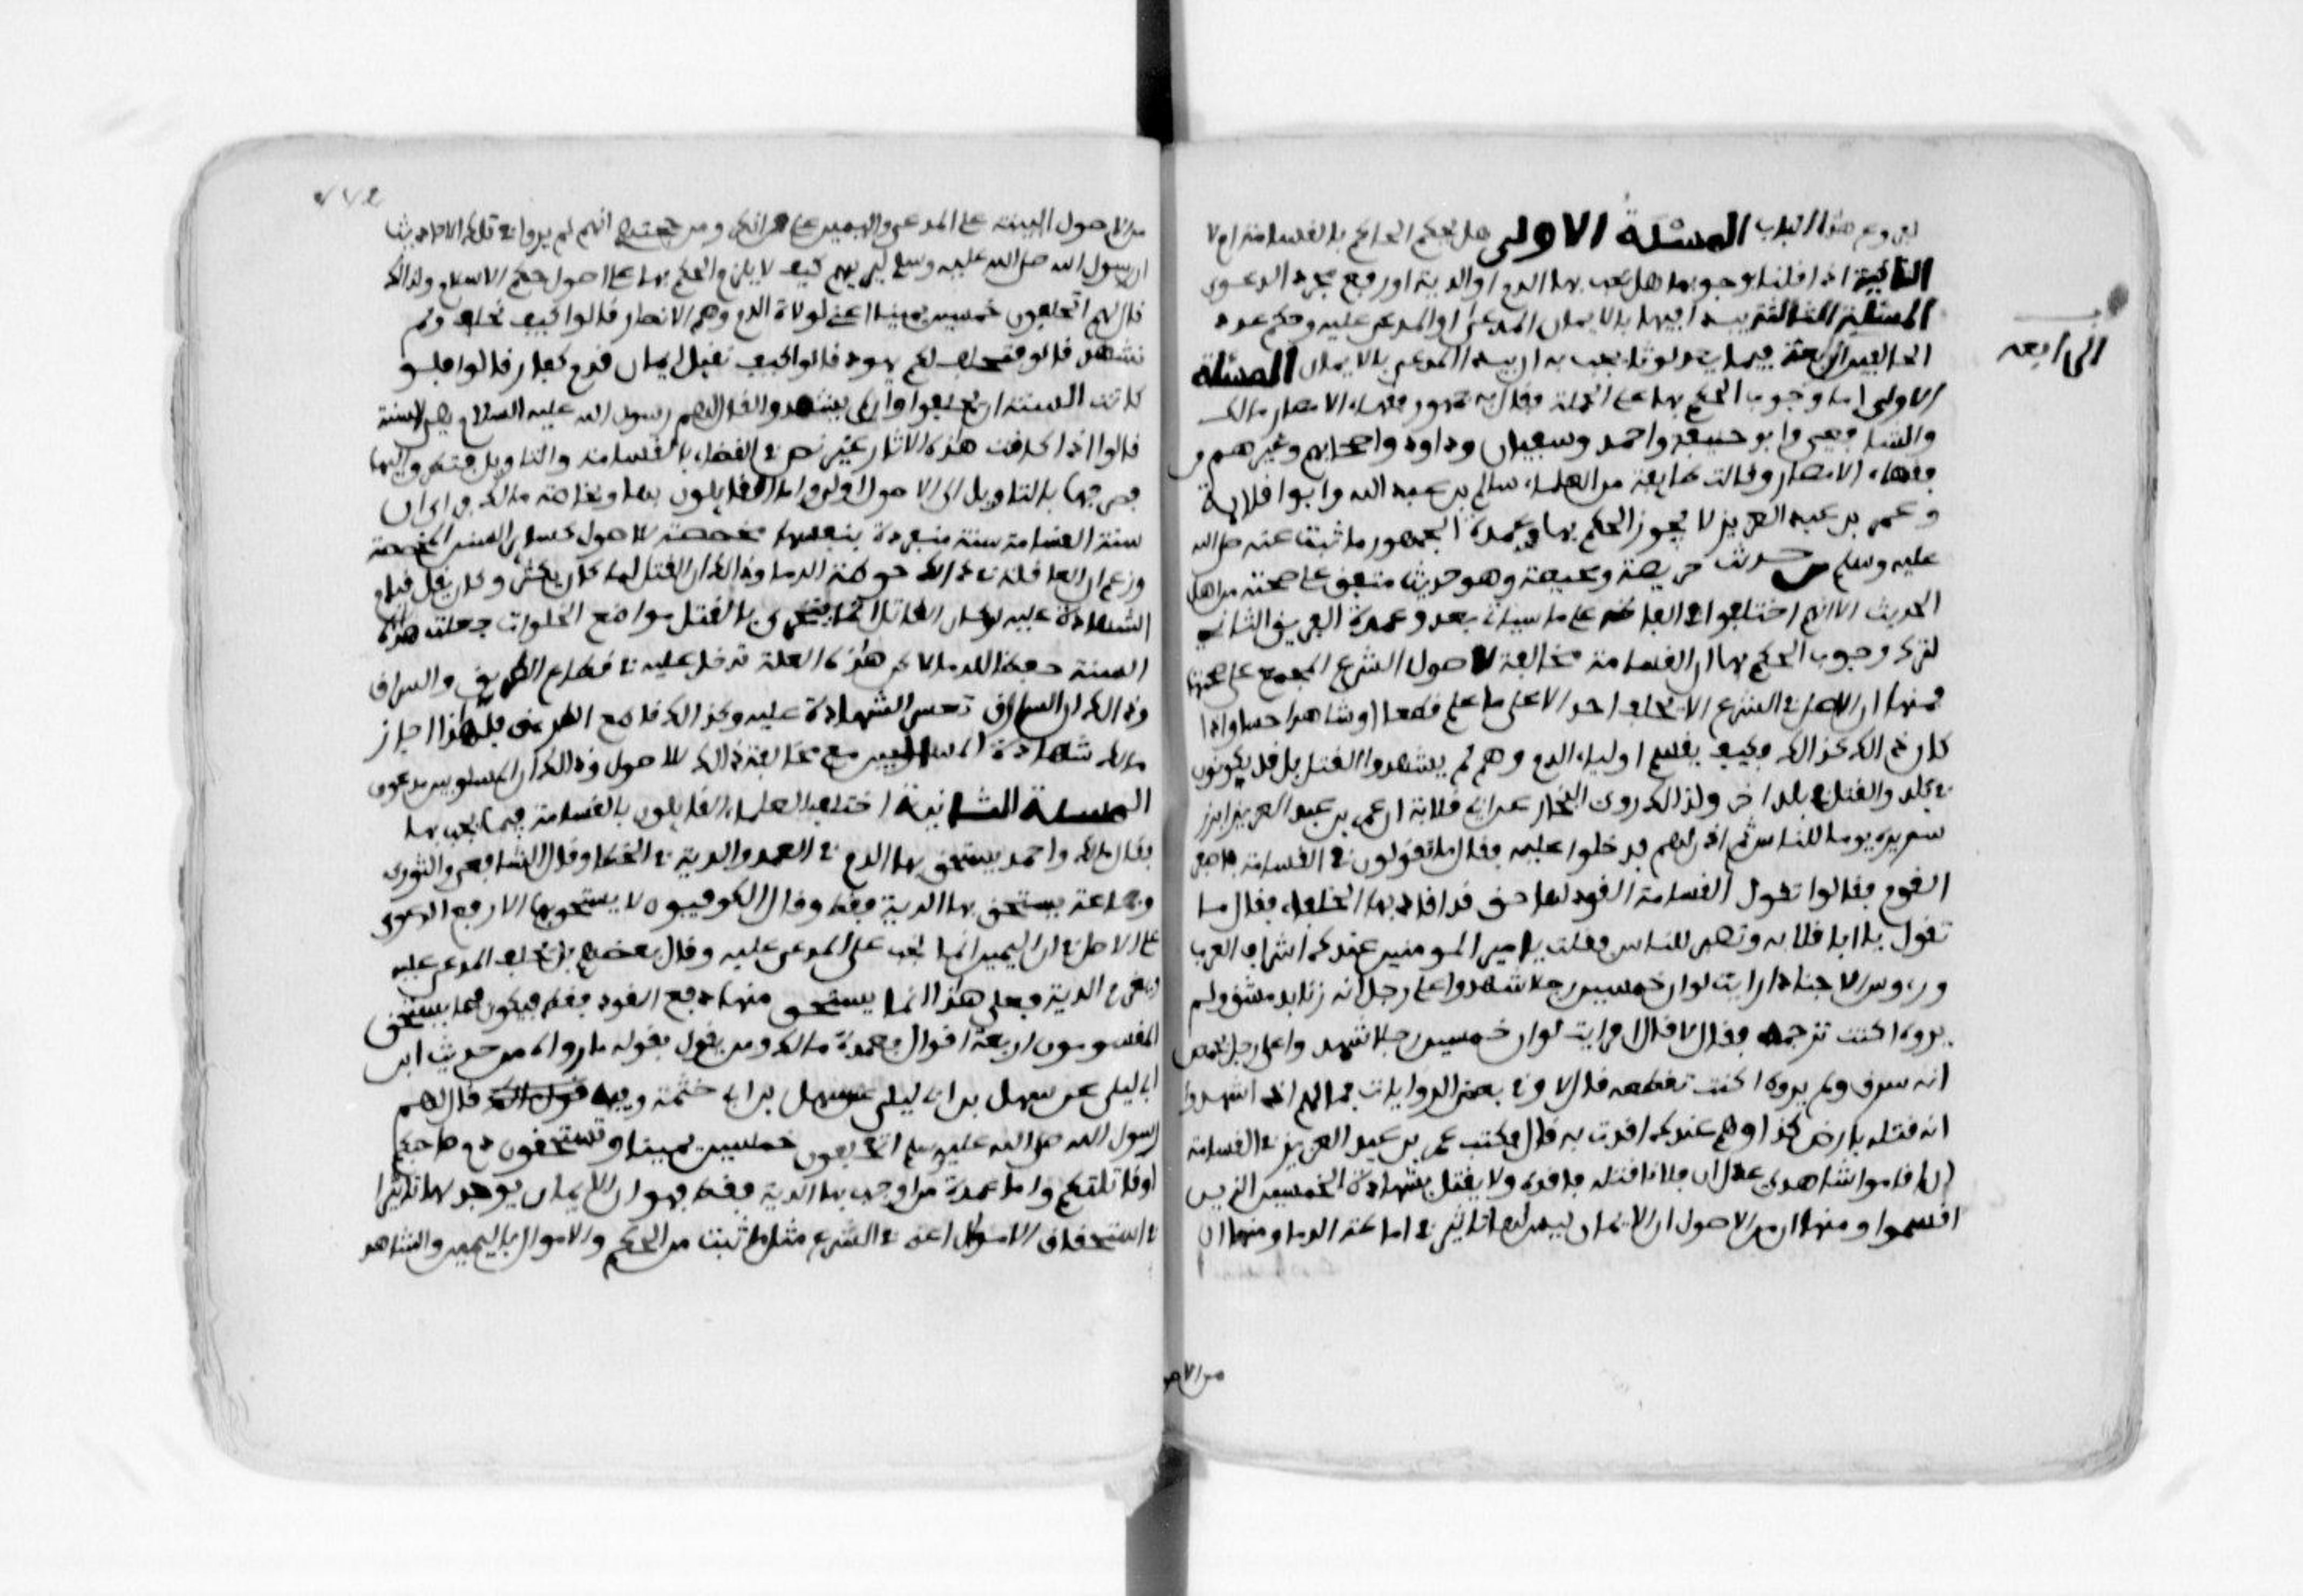 لفروع هذا الباب المسئلة الاولى هل يجب الحكم بالقسامة ام لا
الثانية اذا قلنا بوجوبها هل يجب بها الدم او الدية او دفع مجرد الدعوى
المسئلة الثالثة هل يبدا فيها بالايمان المدعى او المدعى عليه وكم عدد
الحالفين الرابعة فيما يعد لوثا يجب به ان يبدا المدعى بالايمان المسئلة
الرابعة
الاولى اما وجوب الحكم بها على الجملة فقال به جمهور فقهاء الامصار مالك
والشافعى وابو حنيفة واحمد وسفيان وداود واصحابهم وغيرهم من
فقهاء الامصار وقالت طايفة من العلماء سالم بن عبد الله وابوا قلابة
وعمر بن عبد العزيز لا يجوز الحكم بها وعمدة الجمهور ما ثبت عنه صلى الله
عليه وسلم من حديث حويصة ومحيصة وهو حديث متفق على صحته من اهل
الحديث الا انهم اختلفوا فى الفاظه على ما سياتى بعد وعمدة الفريق الثانى
لترك وجوب الحكم بها ان القسامة مخالفة لاصول الشرع المجمع على صحتها
فمنها ان الاصل فى الشرع الا يحلف احد الا على ما علم قطعا او شاهد حسا واذا
كان ذالك كذالك فكيف يقسم اولياء الدم وهم لم يشهدوا القتل بل قد يكونون
فى بلد والقتل فى بلد اخر ولذالك روى البخارى عن ابى قلابة ان عمر بن عبد العزيز ابرز
سريره يوما للناس ثم اذن لهم فدخلوا عليه فقال ما تقولون فى القسامة فاضب
القوم فقالوا نقول القسامة القود بها حق قد اقاد بها الخلفاء فقال ما
تقول يا ابا قلابة ونصبنى للناس فقلت يا امير المومنين عندك اشراف العرب
ورءوس الاجناد ارايت لو ان خمسين رجلا شهدوا على رجل انه زنا بدمشق ولم
يروه اكنت ترجمه فقال لا قال افرايت لو ان خمسين رجلا شهدوا على رجل بحمص
انه سرق ولم يروه اكنت تقطعه قال لا وفى بعض الروايات فما بالهم اذا اشهدوا
انه قتله بارض كذا وهم عندك اقدت به قال فكتب عمر بن عبد العزيز فى القسامة
ان اقاموا شاهدى عدل ان فلانا قتله فاقده ولا يقتل بشهادة الخمسين الذين
اقسموا ومنها ان من الاصول ان الايمان ليس لها تاثير فى اشاطة الدما ومنها ان
من الاصو
من الاصول البينة على المدعى واليمين على من انكر ومن حجتهم انهم لم يروا فى تلك الاحاديث
ان رسول الله صلى الله عليه وسلم حكم بالقسامة وانما كانت حكما جاهليا فتلطف لهم
ان رسول الله صلى الله عليه وسلم ليريهم كيف لا يلزم الحكم بها على اصول حكم الاسلام ولذالك
قال لهم اتحلفون خمسين يمينا اعنى لولاة الدم وهم الانصار قالوا كيف نحلف ولم
نشهد قال فتحلف لكم يهود قالوا كيف نقبل ايمان قوم كفار قالوا فلو
كانت السنة ان يحلفوا وان لم يشهدوا لقال لهم رسول الله عليه السلام هى السنة
قالوا اذا كانت هذه الاثار غير نص فى القضاء بالقسامة والتاويل يتطرق اليها
فصرفها بالتاويل الى الاصول اولى واما القايلون بها وبخاصة مالك فراى ان
سنة القسامة سنة منفردة بنفسها مخصصة للاصول كساير السنن المخصصة
وزعم ان العلة فى ذالك حوطة الدما وذالك ان القتل لما كان يكثر وكان يقل قيام
الشهادة عليه لكون القاتل انما يتحرى بالقتل مواضع الخلوات جعلت هذه
السنة حفظا للدما لاكن هذه العلة تدخل عليه فى قطاع الطريق والسراق
وذالك ان السارق تعسر الشهادة عليه وكذالك قاطع الطريق فلهذا اجاز
مالك شهادة المسلوبين مع مخالفة ذالك للاصول وذالك ان المسلوبين مدعون
المسئلة الثانية اختلف العلماء القايلون بالقسامة فيما يجب بها
فقال مالك واحمد يستحق بها الدم فى العمد والدية فى الخطا وقال الشافعى والثورى
وجماعة يستحق بها الدية فقط وقال الكوفيون لا يستحق بها الا دفع الدعوى
على الاصل فى ان اليمين انما تجب على المدعى عليه وقال بعضهم بل يحلف المدعى عليه
ويغرم الدية فعلى هذا انما يستحق منها دفع القود فقط فيكون فيما يستحق
المقسومون اربعة اقوال فعمدة مالك ومن يقول بقوله ما رواه من حديث ابن
ابى ليلى عن سهل بن ابى حثمة وفيه فقال لهم
رسول الله صلى الله عليه وسلم اتحلفون خمسين يمينا وتستحقون دم صاحبكم
او قاتلكم واما عمدة من اوجب بها الدية فقط فهو ان الايمان يوجد لها تاثير
فى استحقاق الاموال اعنى فى الشرع مثل ما ثبت من الحكم فى الاموال باليمين والشاهد